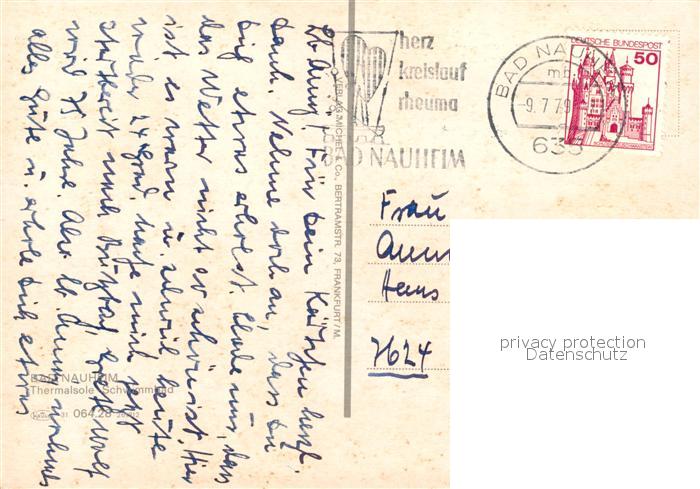 Lb Anny! Für Dein Kärtchen herzl.
Dank. Nehme doch an, dass Du
Dich etwas erholst. Schade nur, dass
das Wetter nicht so schön ist. Hier
ist es warm u. schwül heute
wieder 24 Grad. habe mich jetzt
nach
wird 75 Jahre. Also lb Anny nochmals
alles Gute u. erhole Dich etwas
BAD NAUHEIM
Thermalsole Schwimmbad
31 064.28
VERLAG MICHEL & Co., BERTRAMSTR. 73, FRANKFURT/M.
herz
kreislauf
rheuma
BAD NAUHEIM
BAD NAUHEIM
mb
9.7.79
635
DEUTSCHE BUNDESPOST
50
Frau
Hans
7624
privacy protection
Datenschutz